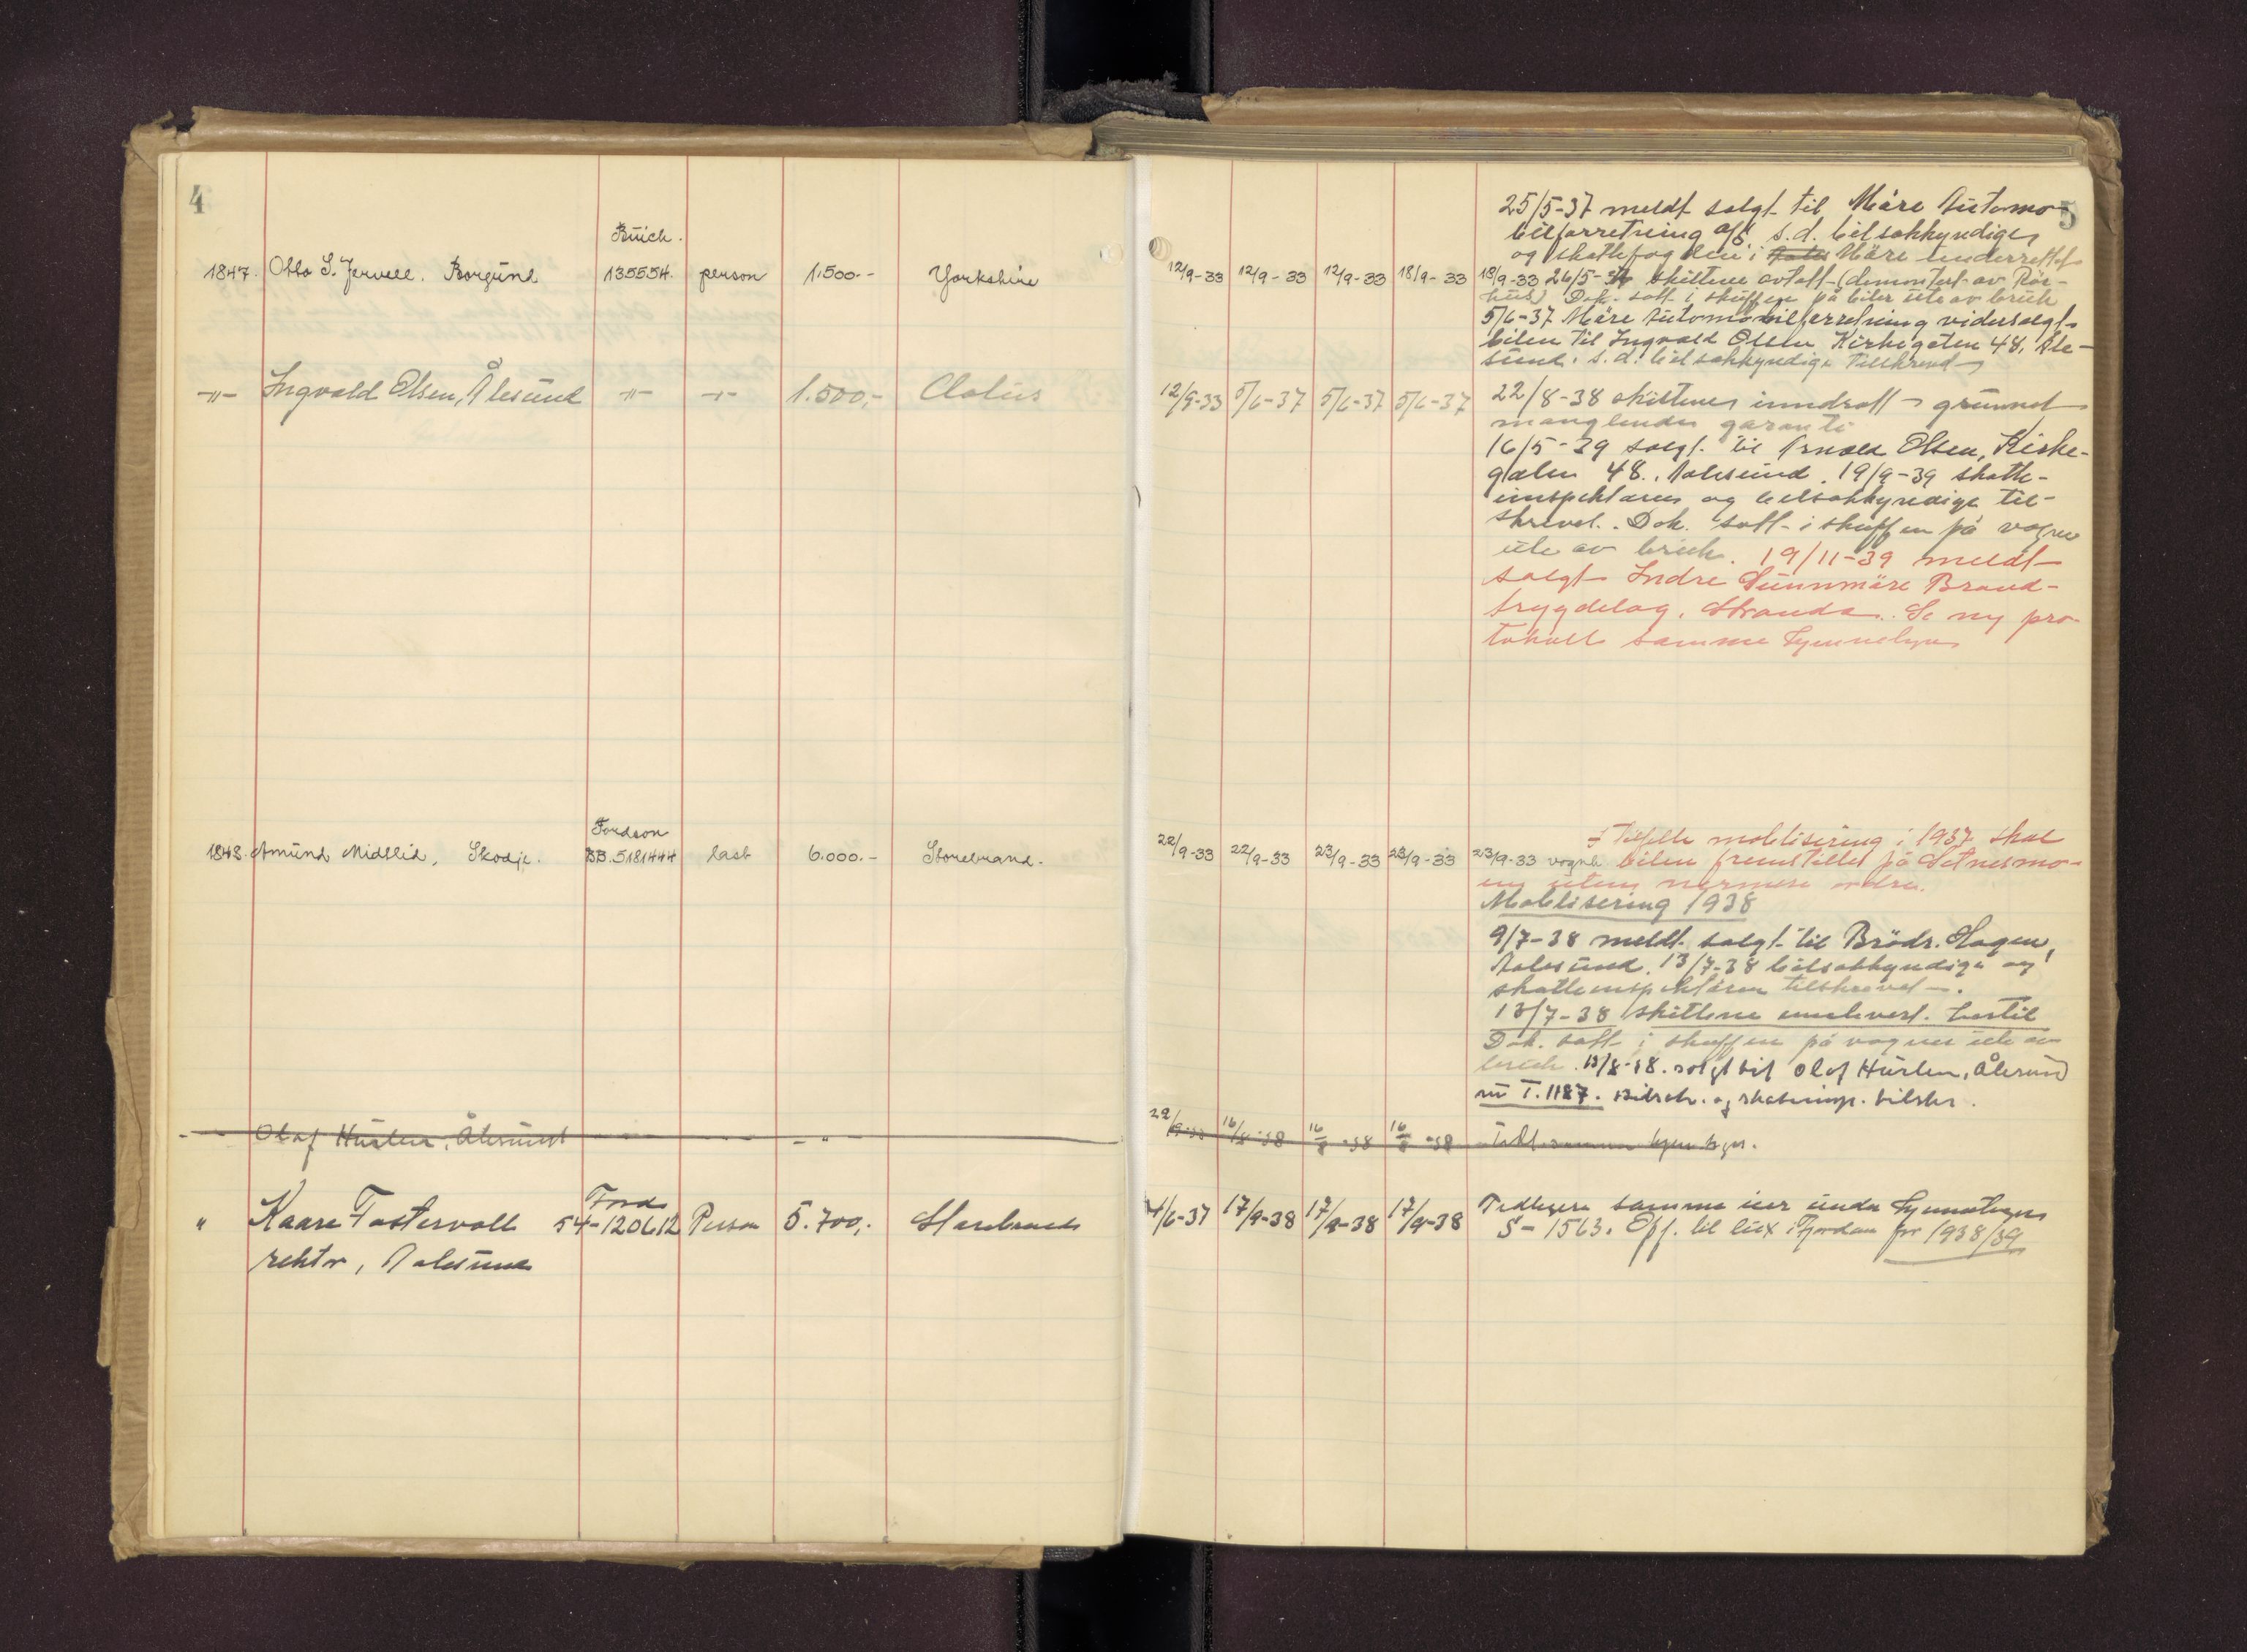 4
Buick.
1847. Otto S. Jervell. Borgund 135554. person 1.500.- Yorkshire
-"- Ingvald Olsen, Ålesund -"- -"- 1.500,- Clolus
Fordson
1848. Amund Midtlid, Skodje. BB.5181444 last 6.000.- Storebrand.
Olaf Hurlen, Ålesund - " -
Ford
" Kaare Fostervoll 54-120612 Person 5.700,- Storebrand
rektor, Aalesund
5
25/5-37 meldt solgt til Møre Automo-
bilforretning A/S. s.d. bilsakkyndige
og skattefogden i Møre underrettet
12/9-33 12/9-33 12/9-33 18/9-33 18/9-33 26/5- skiltene avtatt (demontert av Rör-
hus) Dok. satt i skuffen på biler ute av bruk
5/6-37 Møre Automobilforretning vidersolgt
bilen til Ingvald Olsen Kirkegaten 48, Åle-
sund. s.d. bilsakkyndige tilskrevet
12/9-33 5/6-37 5/6-37 5/6-37 22/8-38 skiltene inndratt grunnet
manglende garanti
16/5-39 solgt til Arnold Olsen, Kirke-
gaten 48, Aalesund. 19/9-39 skatte-
inspektøren og bilsakkyndige til-
skrevet. Dok. satt i skuffen på vogner
ute av bruk. 19/11-39 meldt
solgt Indre Sunnmøre Brand-
trygdelag, Stranda. Se ny pro-
tokoll samme kjennetegn
I Tilfelle mobilisering i 1937 skal
22/9-33 22/9-33 23/9-33 23/9-33 23/9-33 vognk. bilen fremstilles på Setnesmo-
en uten nærmere ordre.
Mobilisering 1938
9/7-38 meldt solgt til Brødr. Hagen,
Aalesund. 13/7-38 bilsakkyndige og
skatteinspektøren tilskrevet.
13/7-38 skiltene innlevert.
Dok. satt i skuffen på vogner ute av
bruk. 13/8-38. solgt til Olaf Hurlen, Ålesund
nu T.1187. Bilsak. og skatteinsp. tilskr.
22/9-33 16/8-38 16/8-38 16/8-38 samme kjen
4/6-37 17/9-38 17/9-38 17/9-38 Tidligere samme eier under kjennetegn
S-1563. Opf. til lux i Fjordan for 1938/39